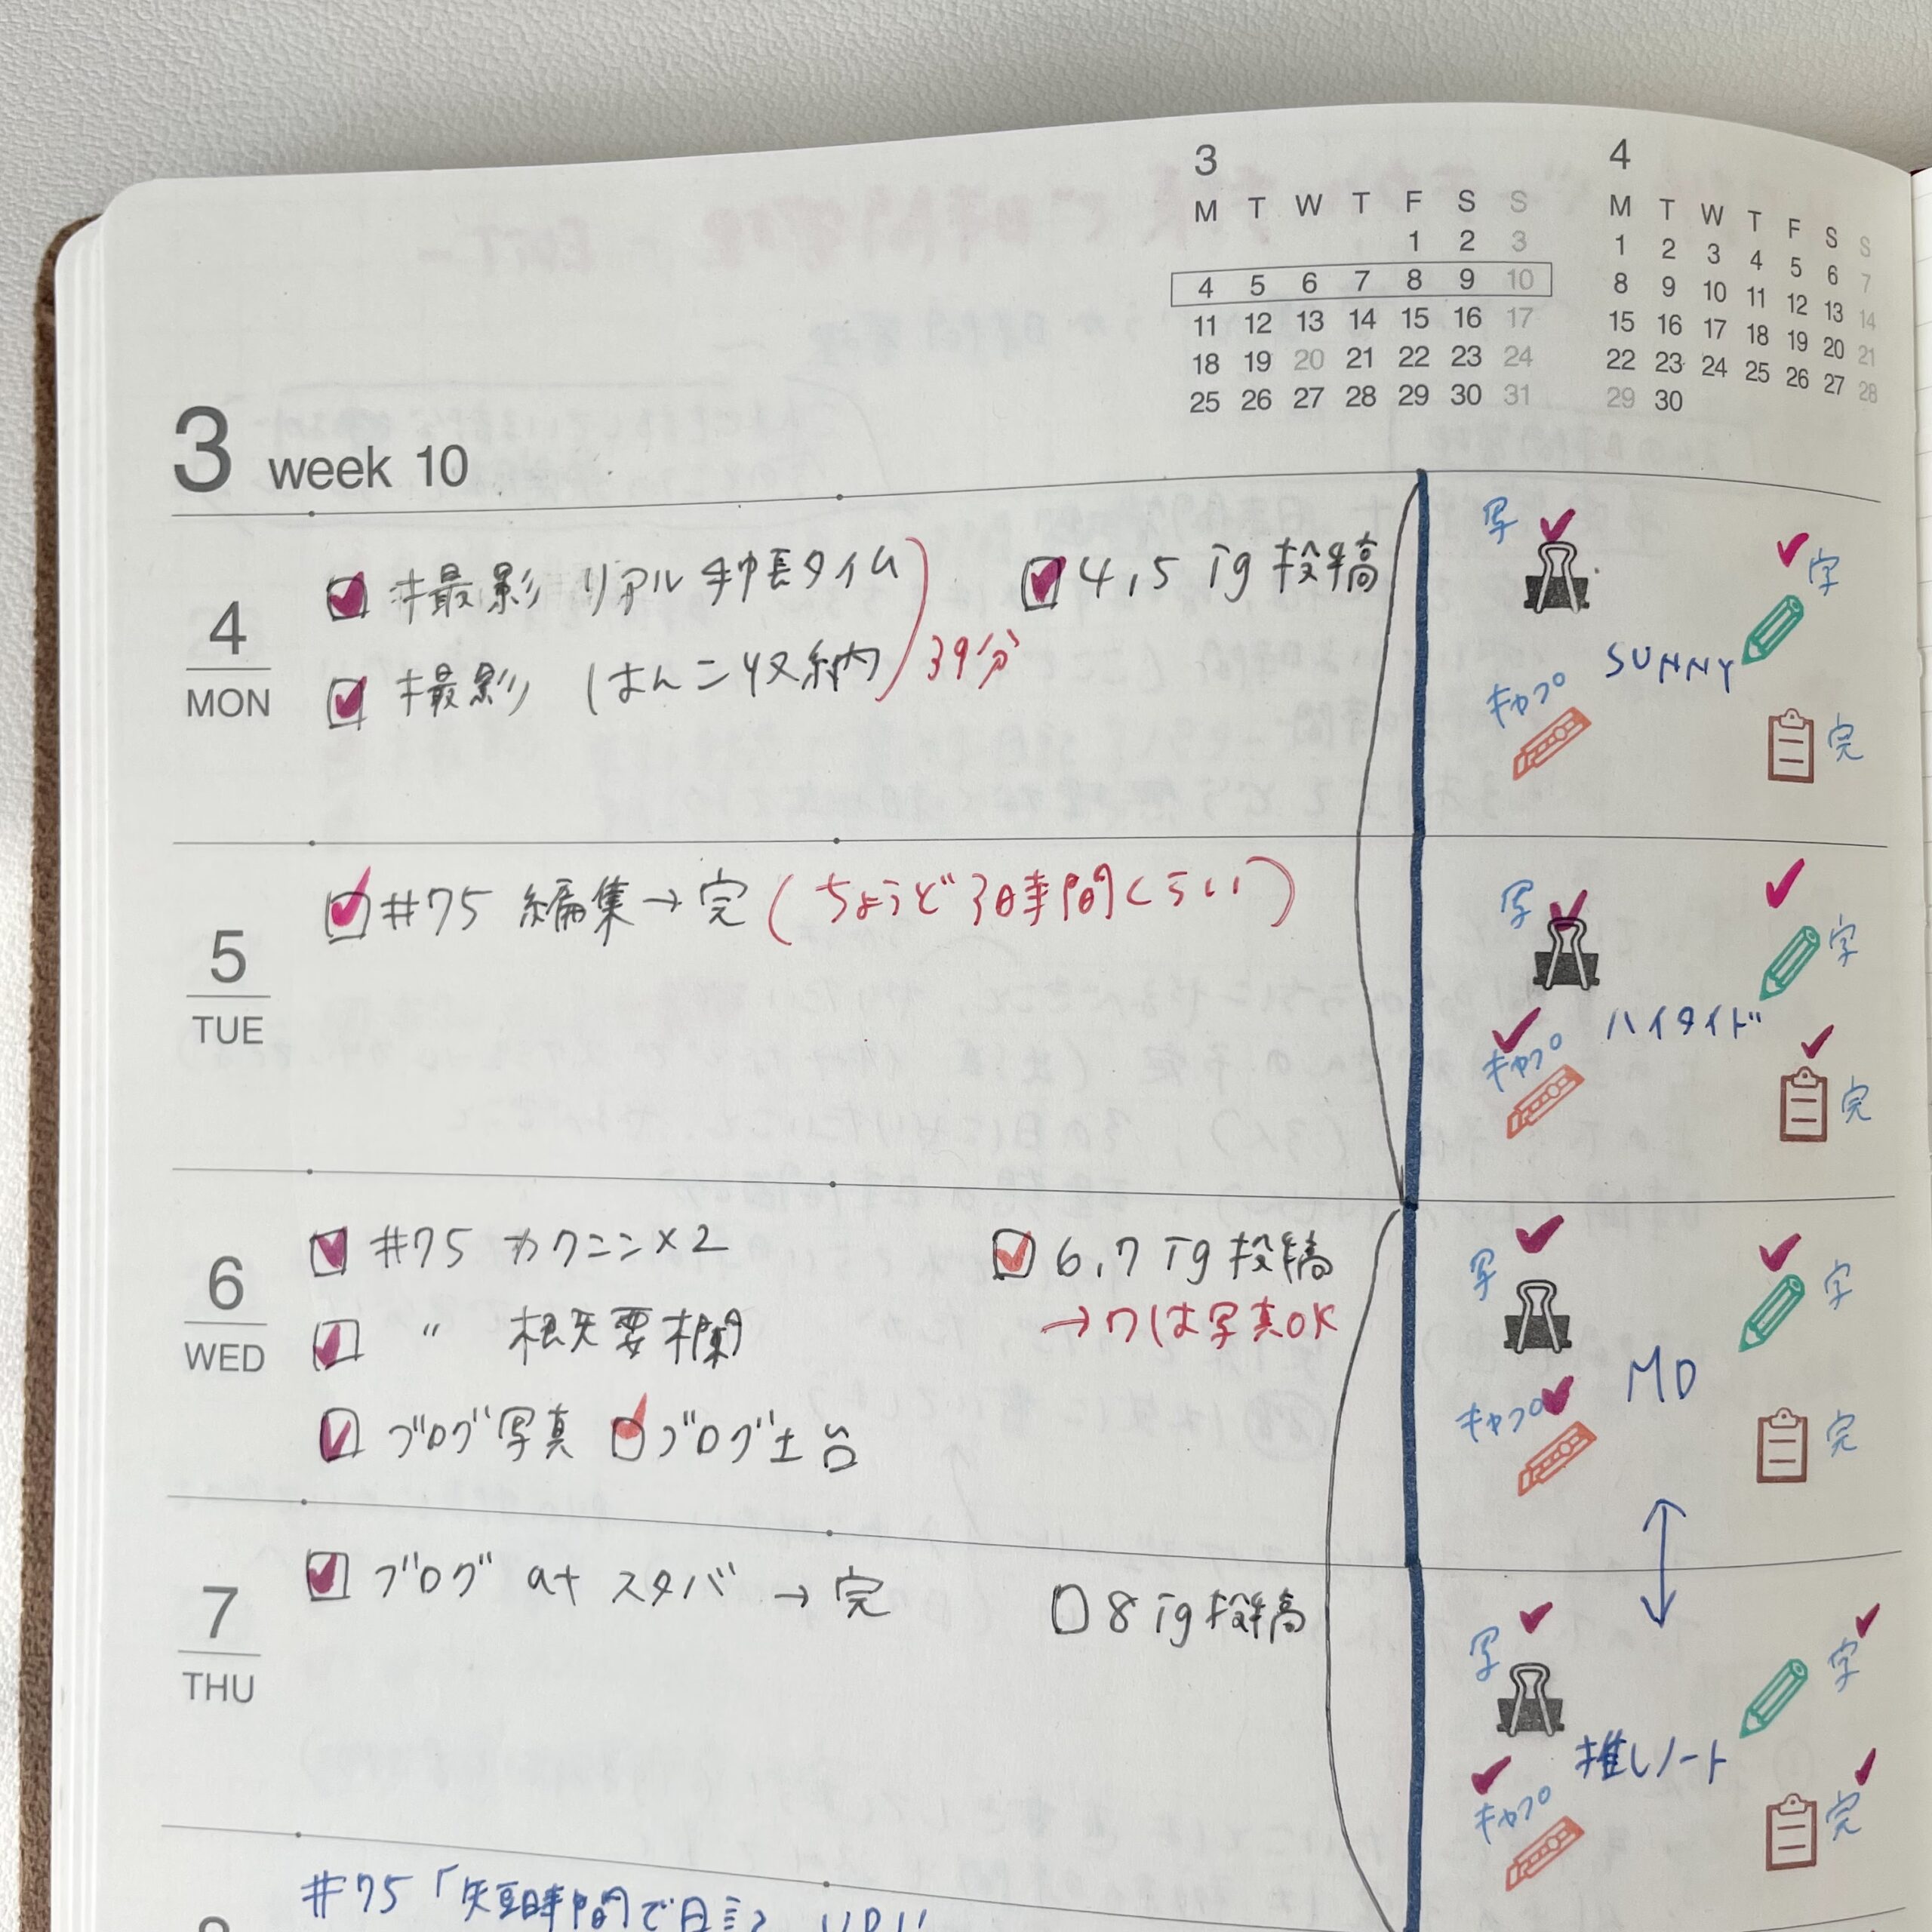 3
M T W T F S S
1 2 3
4 5 6 7 8 9 10
11 12 13 14 15 16 17
18 19 20 21 22 23 24
25 26 27 28 29 30 31
4
M T W T F S S
1 2 3 4 5 6 7
8 9 10 11 12 13 14
15 16 17 18 19 20 21
22 23 24 25 26 27 28
29 30
3 week 10
4
MON
撮影 リアル手帳タイム
撮影 はんこ収納
39分
4,5 ig 投稿
写
字
SUNNY
キャプ
完
5
TUE
#75 編集→完(ちょうど3時間くらい)
写
字
ハイタイド
キャプ
完
6
WED
#75 カクニン×2
〃 概要欄
ブログ写真
ブログ土台
6,7 ig 投稿
→7は写真OK
写
字
MD
キャプ
完
7
THU
ブログ at スタバ → 完
8 ig 投稿
写
字
推しノート
キャプ
完
#75「短時間で日記